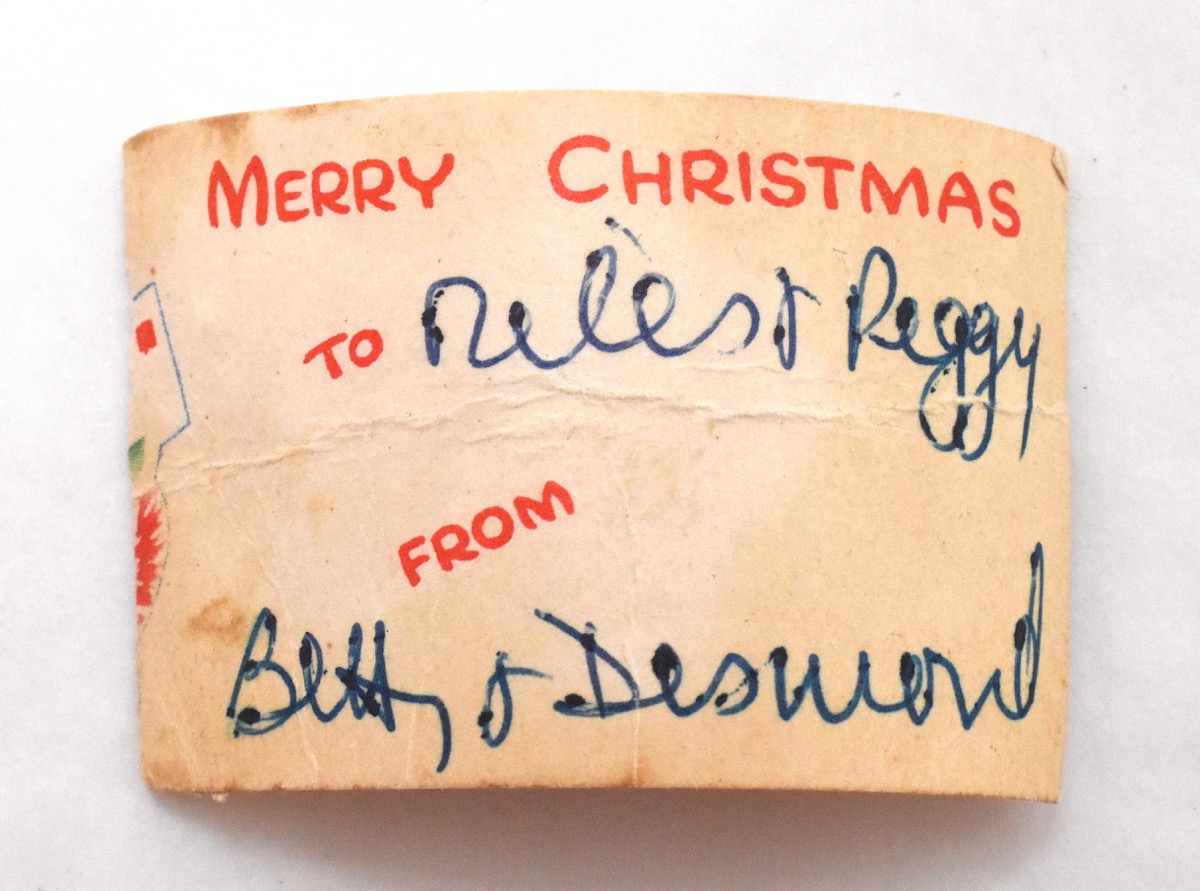 MERRY CHRISTMAS
TO & Peggy
FROM
Betty & Desmond